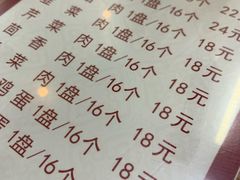 22
盘/16个 24元
芹菜 肉1盘/16个 18元
茴香 肉1盘/16个 18元
菜 肉1盘/16个 18元
菜 肉1盘/16个 18元
鸡蛋1盘/16个 18元
蛋1盘/16个 18元